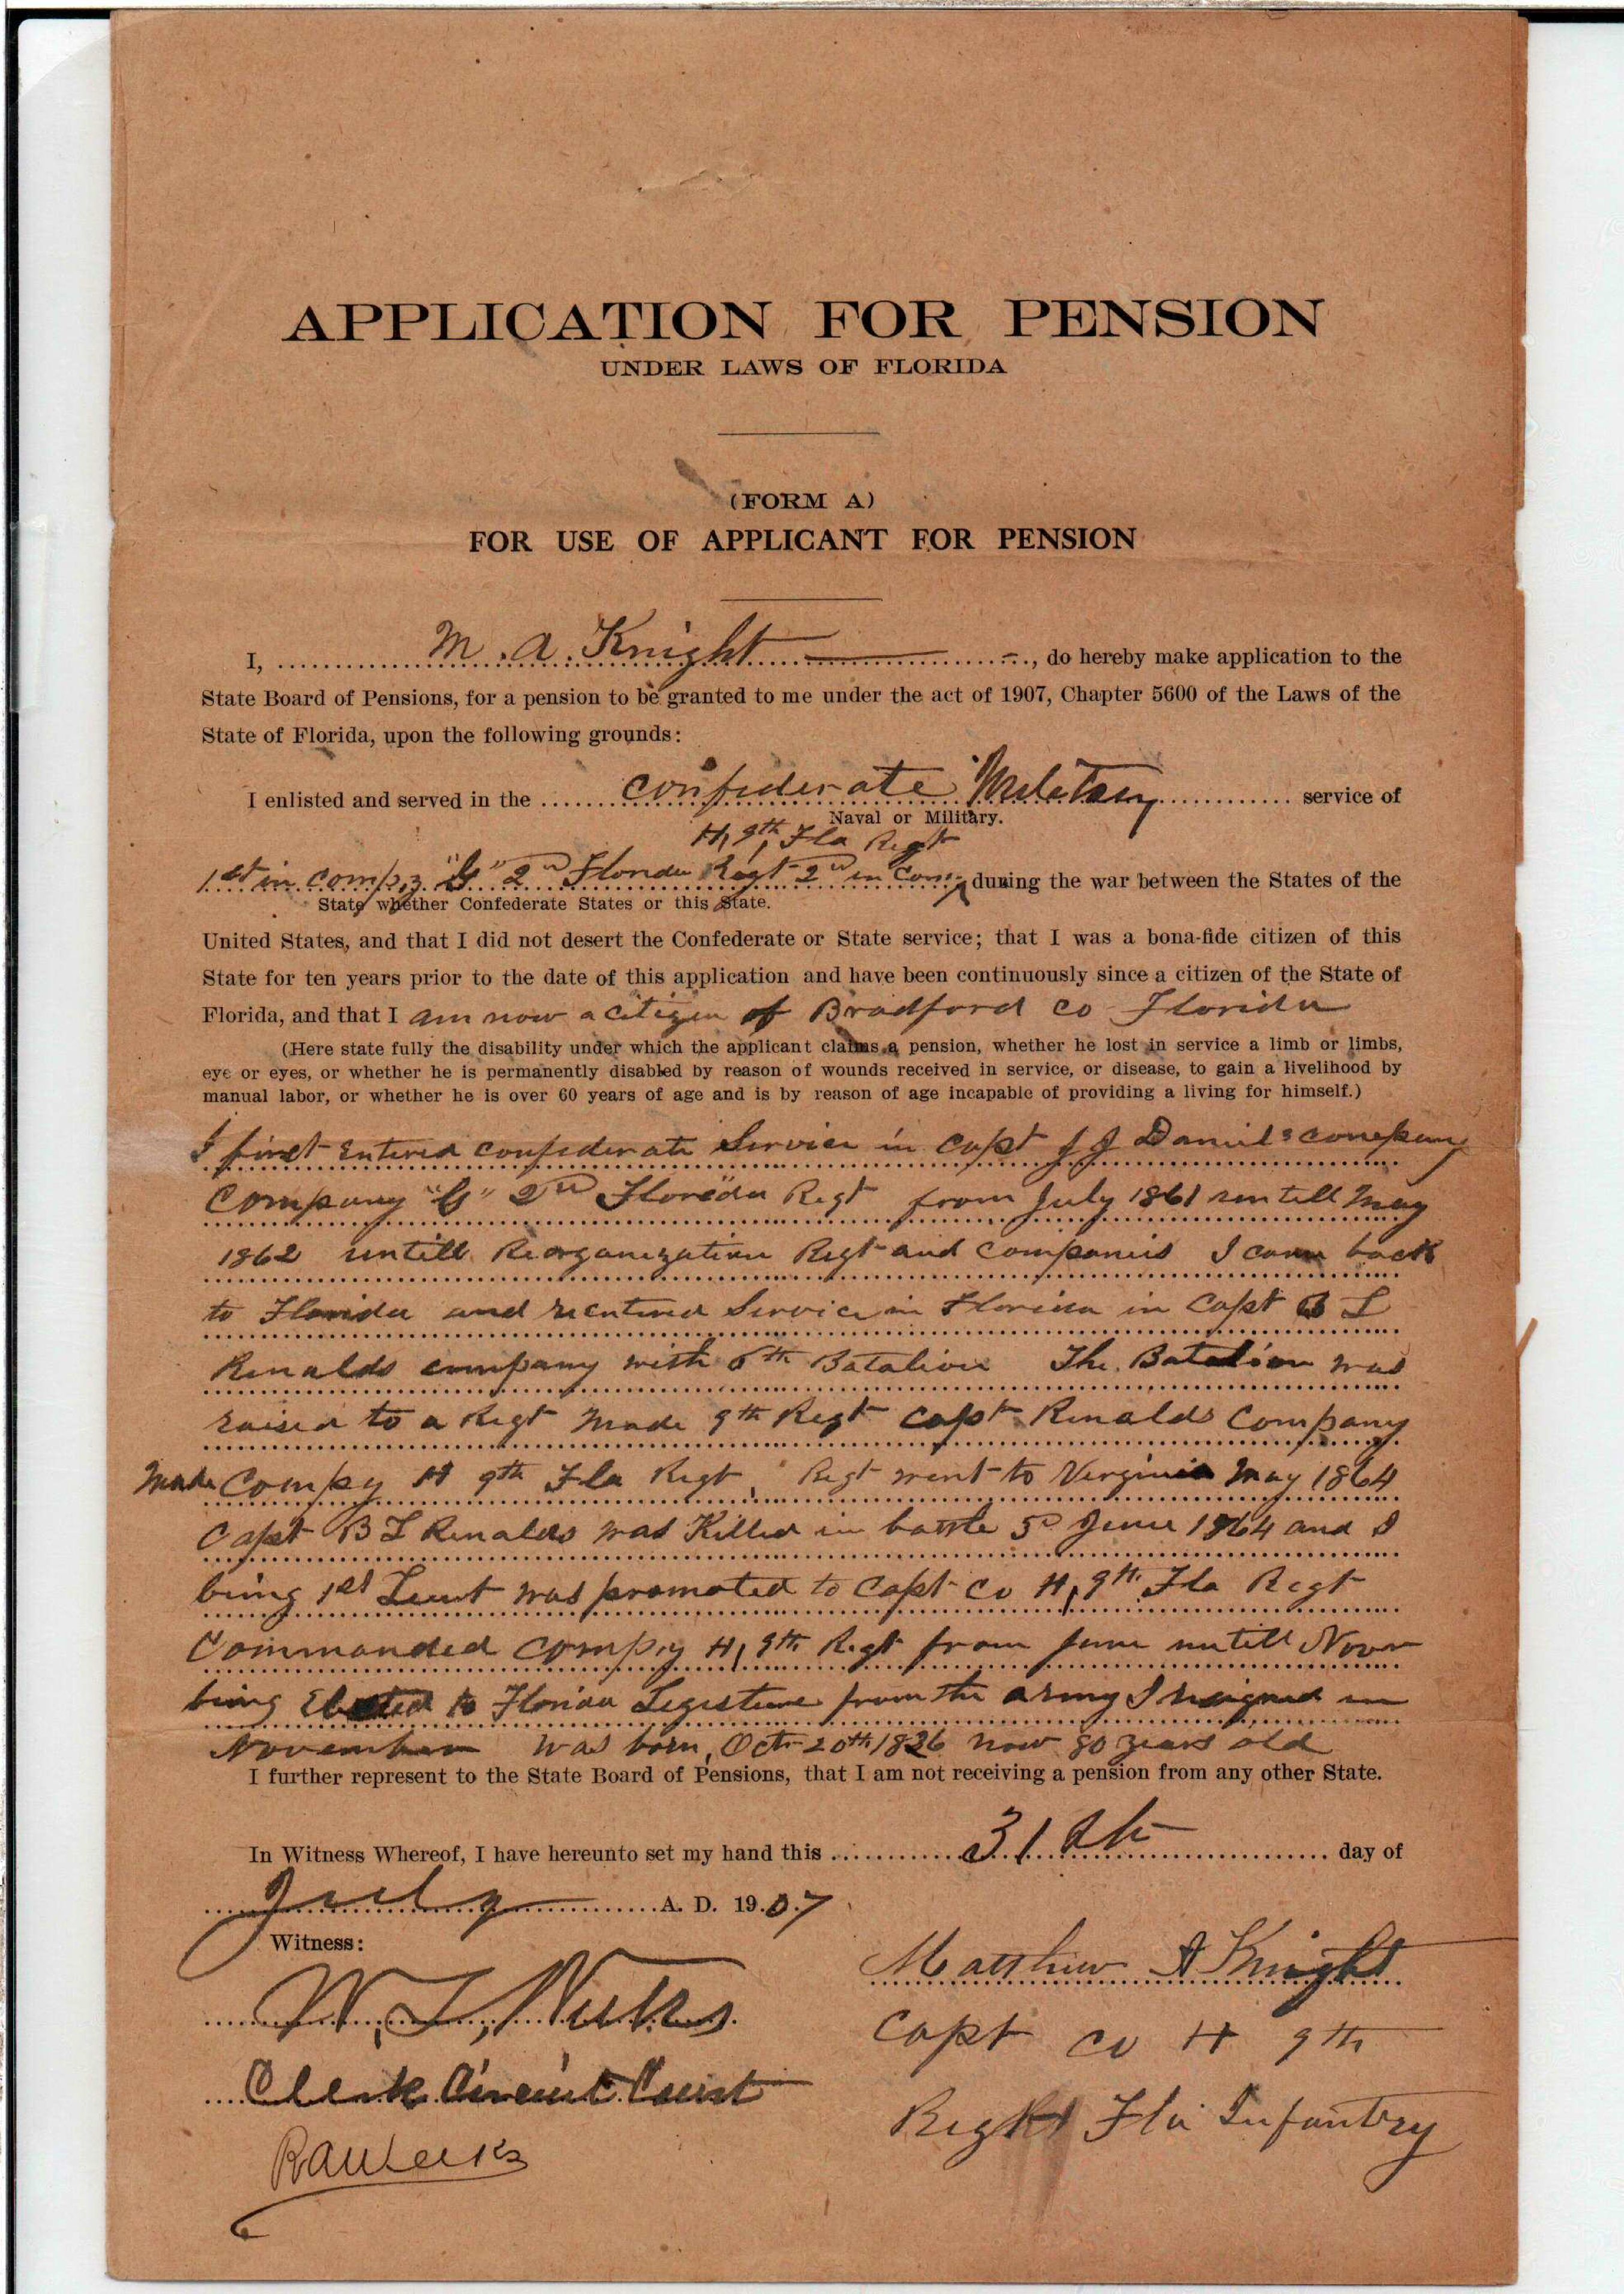 APPLICATION FOR PENSION
UNDER LAWS OF FLORIDA
(FORM A)
FOR USE OF APPLICANT FOR PENSION
I, M. A. Knight, do hereby make application to the
State Board of Pensions, for a pension to be granted to me under the act of 1907, Chapter 5600 of the Laws of the
State of Florida, upon the following grounds:
I enlisted and served in the Confederate Military service of
Naval or Military.
H, 9th, Fla Regt
1st in Compy "G" 2nd Florida Regt 2nd in Comy during the war between the States of the
State whether Confederate States or this State.
United States, and that I did not desert the Confederate or State service; that I was a bona-fide citizen of this
State for ten years prior to the date of this application and have been continuously since a citizen of the State of
Florida, and that I am now a citizen of Bradford Co Florida
(Here state fully the disability under which the applicant claims a pension, whether he lost in service a limb or limbs,
eye or eyes, or whether he is permanently disabled by reason of wounds received in service, or disease, to gain a livelihood by
manual labor, or whether he is over 60 years of age and is by reason of age incapable of providing a living for himself.)
I first Entered confederate Service in Capt J J Daniels company
Company "G" 2nd Florida Regt from July 1861 untill May
1862 untill Reorganization Regt and Companies I came back
to Florida and reentered Service in Florida in Capt B L
Renalds company with 6th Batalion The Batalion was
raised to a Regt made 9th Regt Capt Renalds Company
made Compy H 9th Fla Regt, Regt went to Virginia May 1864
Capt B L Renalds was Killed in battle 3d June 1864 and I
being 1st Lieut was promoted to Capt Co H, 9th Fla Regt
Commanded Compy H, 9th Regt from June untill Novr
being Elected to Florida Legisture from the army I resigned in
November was born, Octr 20th 1826 now 80 years old
I further represent to the State Board of Pensions, that I am not receiving a pension from any other State.
In Witness Whereof, I have hereunto set my hand this 31st day of
July A. D. 1907
Witness:
Matthew A Knight
Capt Co H 9th
Clerk Circuit Court
Regt Fla Infantry